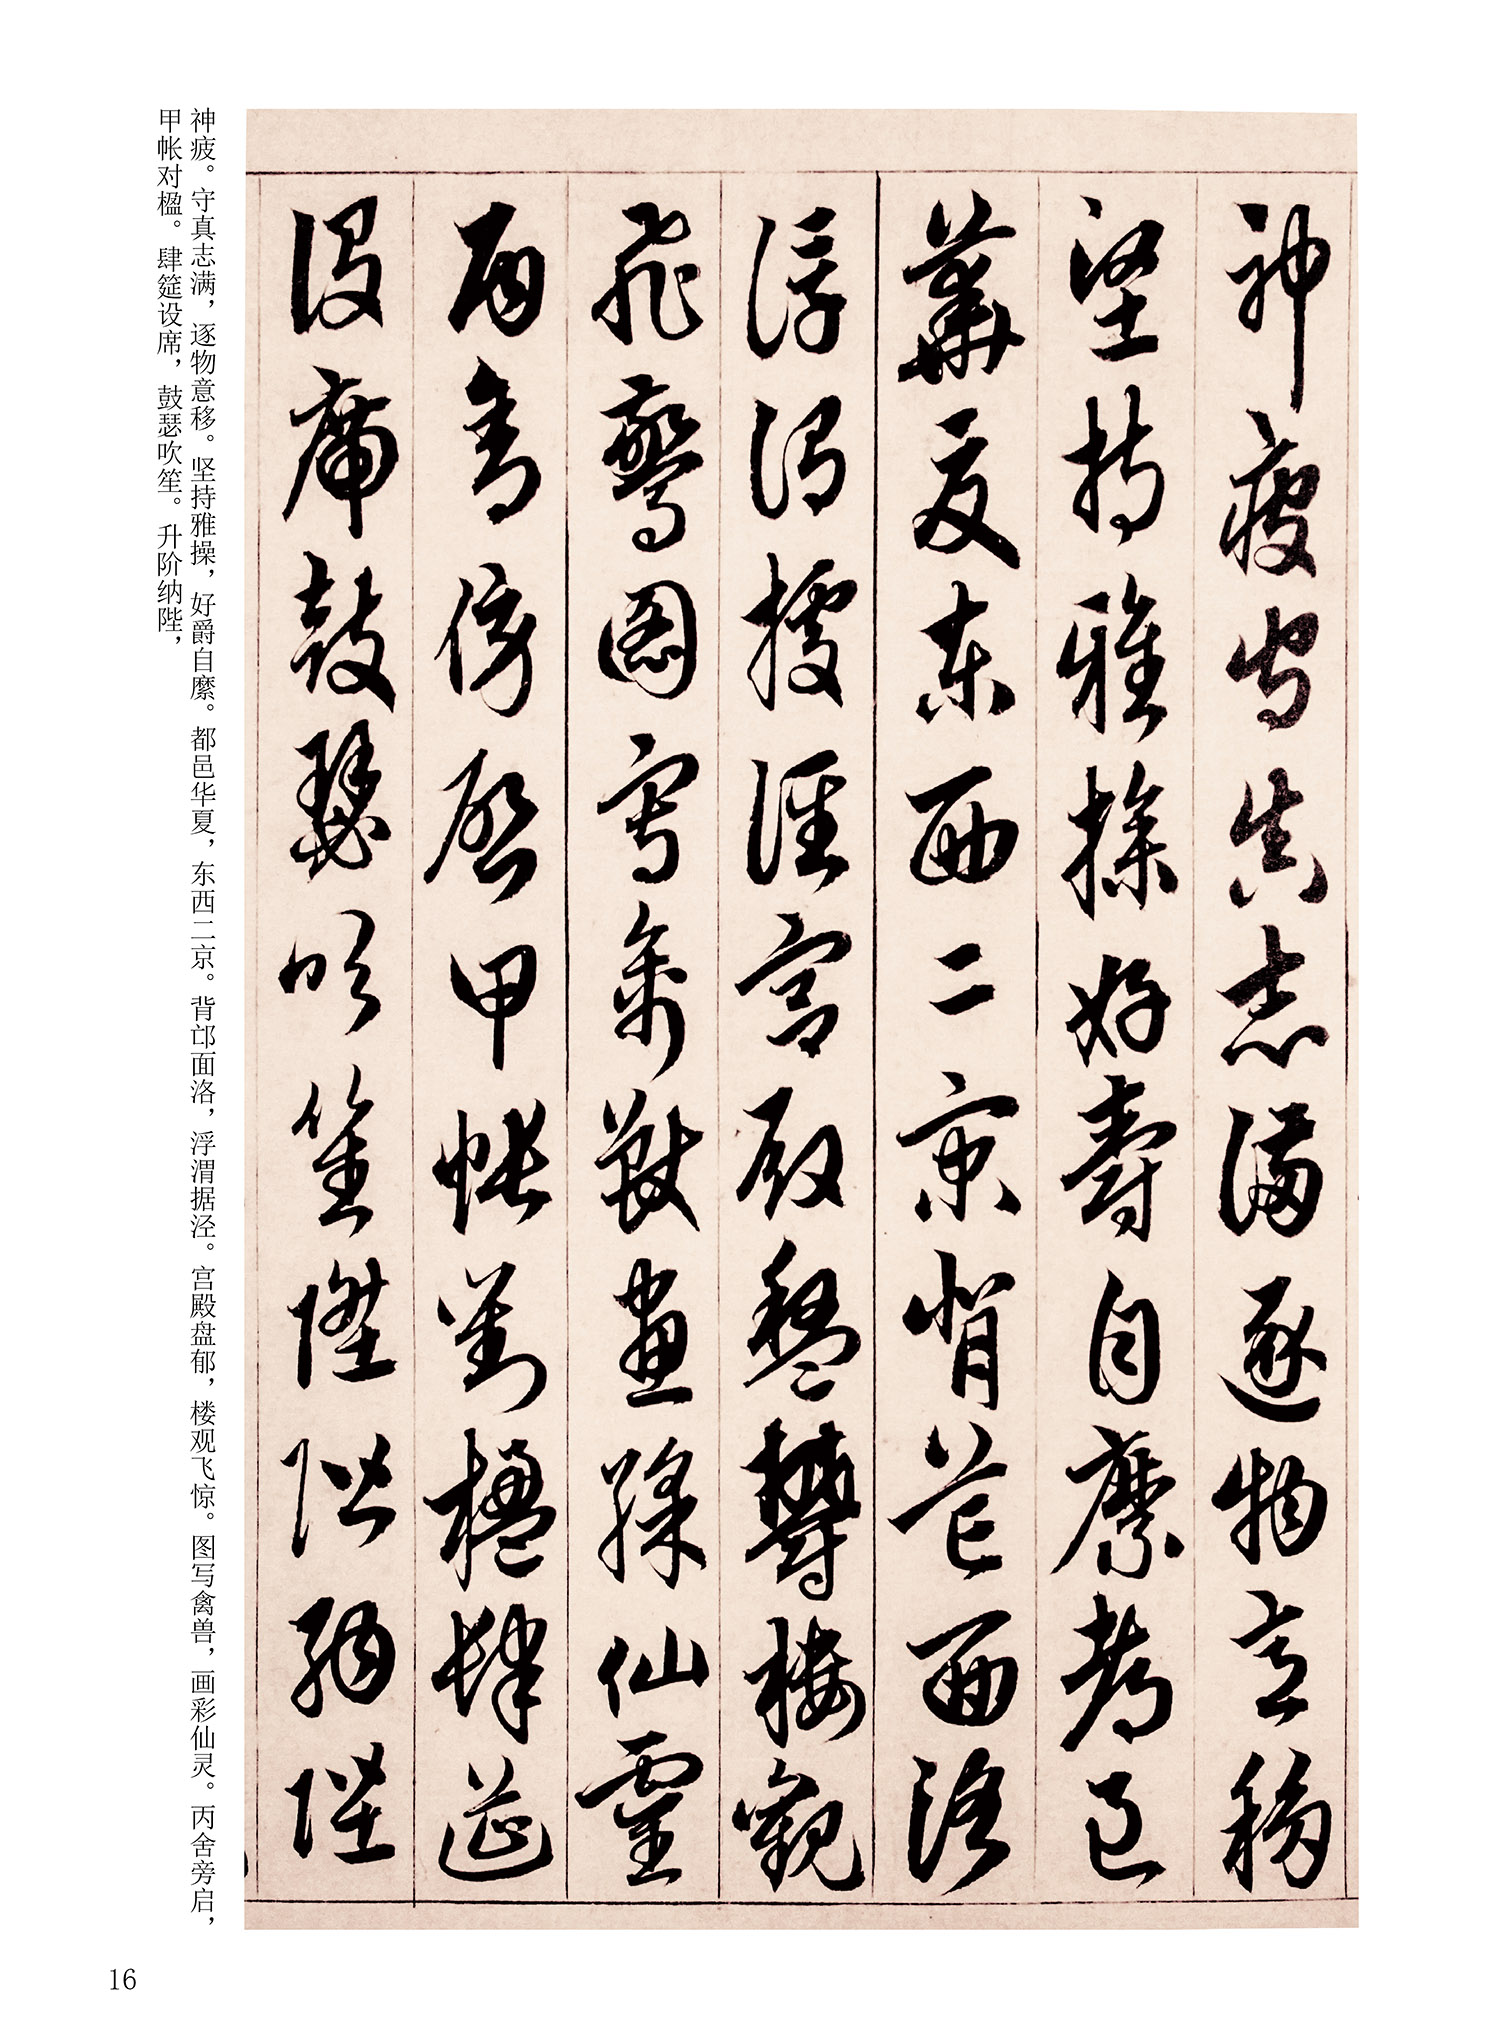 神疲守真志滿逐物意移
堅持雅操好爵自縻都邑
華夏東西二京背芒面洛
浮渭據涇宮殿盤鬱樓觀
飛驚圖寫禽獸畫綵仙靈
丙舍傍啟甲帳對楹肆筵
設席鼓瑟吹笙陞階納陛
神疲。守真志满，逐物意移。坚持雅操，好爵自縻。都邑华夏，东西二京。背邙面洛，浮渭据泾。宫殿盘郁，楼观飞惊。图写禽兽，画彩仙灵。丙舍旁启，
甲帐对楹。肆筵设席，鼓瑟吹笙。升阶纳陛，
16